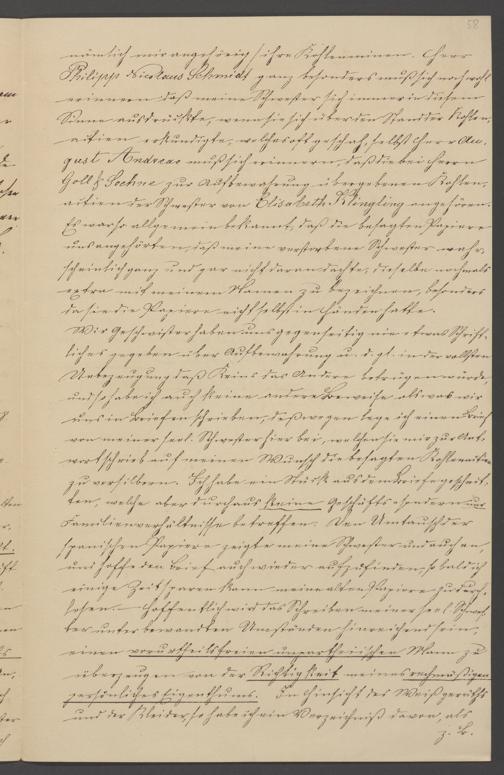 58
nämlich mir angehörig/ ihre Kohlenminen. Herr
Philipp Nicolaus Schmidt ganz besonders muß sich noch wohl
erinnern daß meine Schwester sich immer in diesem
Sinne ausdrückte, wenn sie sich über den Stand der Kohlen,
aktien erkundigte, welches oft geschah, selbst Herr Au,
gust Andreae muß sich erinnern, daß die bei Herrn
Goll & Soehne zur Aufbewahrung übergebenen Kohlen,
aktien der Schwester von Elisabeth Klingling angehören.
Es war so allgemein bekannt, daß die besagten Papiere
uns angehörten, daß meine verstorbene Schwester wahr,
scheinlich ganz und gar nicht daran dachte, dieselbe nochmals
extra mit meinem Namen zu bezeichnen, besonders
da sie die Papiere nicht selbst in Händen hatte.
Wir Geschwister haben uns gegenseitig nie etwas Schrift,
liches gegeben über Aufbewahrung u. d. gl. in der vollsten
Ueberzeugung daß Keins das Andre betrügen würde,
und so habe ich auch keine andere Beweise als was wir
uns in Briefen schrieben, deßwegen lege ich einen Brief
von meiner seel. Schwester hier bei, welchen sie mir zur Ant,
wort schrieb auf meinen Wunsch die besagten Kohlenaktien
zu versilbern. Ich habe ein Stück aus dem Briefe geschnit,
ten, welche aber durchaus keine Geschäfts sondern nur
Familienverhältnisse betreffen. Den Umtausch der
spanischen Papiere zeigte meine Schwester und auch an,
und hoffe den Brief auch wieder aufzufinden, sobald ich
einige Zeit sparen kann meine alten Papiere zu durch,
lesen. Hoffentlich wird das Schreiben meiner seel Schwes,
ter unter bewandten Umständen hinreichend sein,
einen vorurtheilsfreien unpartheiischen Mann zu
überzeugen von der Richtigkeit meines rechmäßigen
persönliches Eigenthums. In Hinsicht des Weißgeräths
und der Kleider, so habe ich ein Verzeichniß davon, als
z. B.